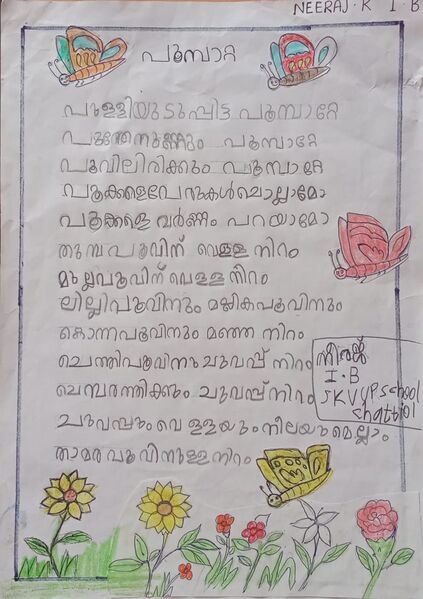 NEERAJ.K I.B
പൂമ്പാറ്റ
പുള്ളിയുടുപ്പിട്ട പൂമ്പാറ്റേ
പൂന്തേനുണ്ണും പൂമ്പാറ്റേ
പൂവിലിരിക്കും പൂമ്പാറ്റേ
പൂക്കളെപേരുകൾചൊല്ലാമോ
പൂക്കളെ വർണ്ണം പറയാമോ
തുമ്പപൂവിന് വെള്ള നിറം
മുല്ലപൂവിന് വെള്ള നിറം
ലില്ലിപൂവിനും മല്ലികപൂവിനും
കൊന്നപൂവിനും മഞ്ഞ നിറം
ചെത്തിപൂവിനു ചുവപ്പ് നിറം
ചെമ്പരത്തിക്കും ചുവപ്പ് നിറം
ചുവപ്പും വെള്ളയും നീലയുമെല്ലാം
താമര പൂവിനുള്ള നിറം
നീരജ്
I.B
SKVUPSchool